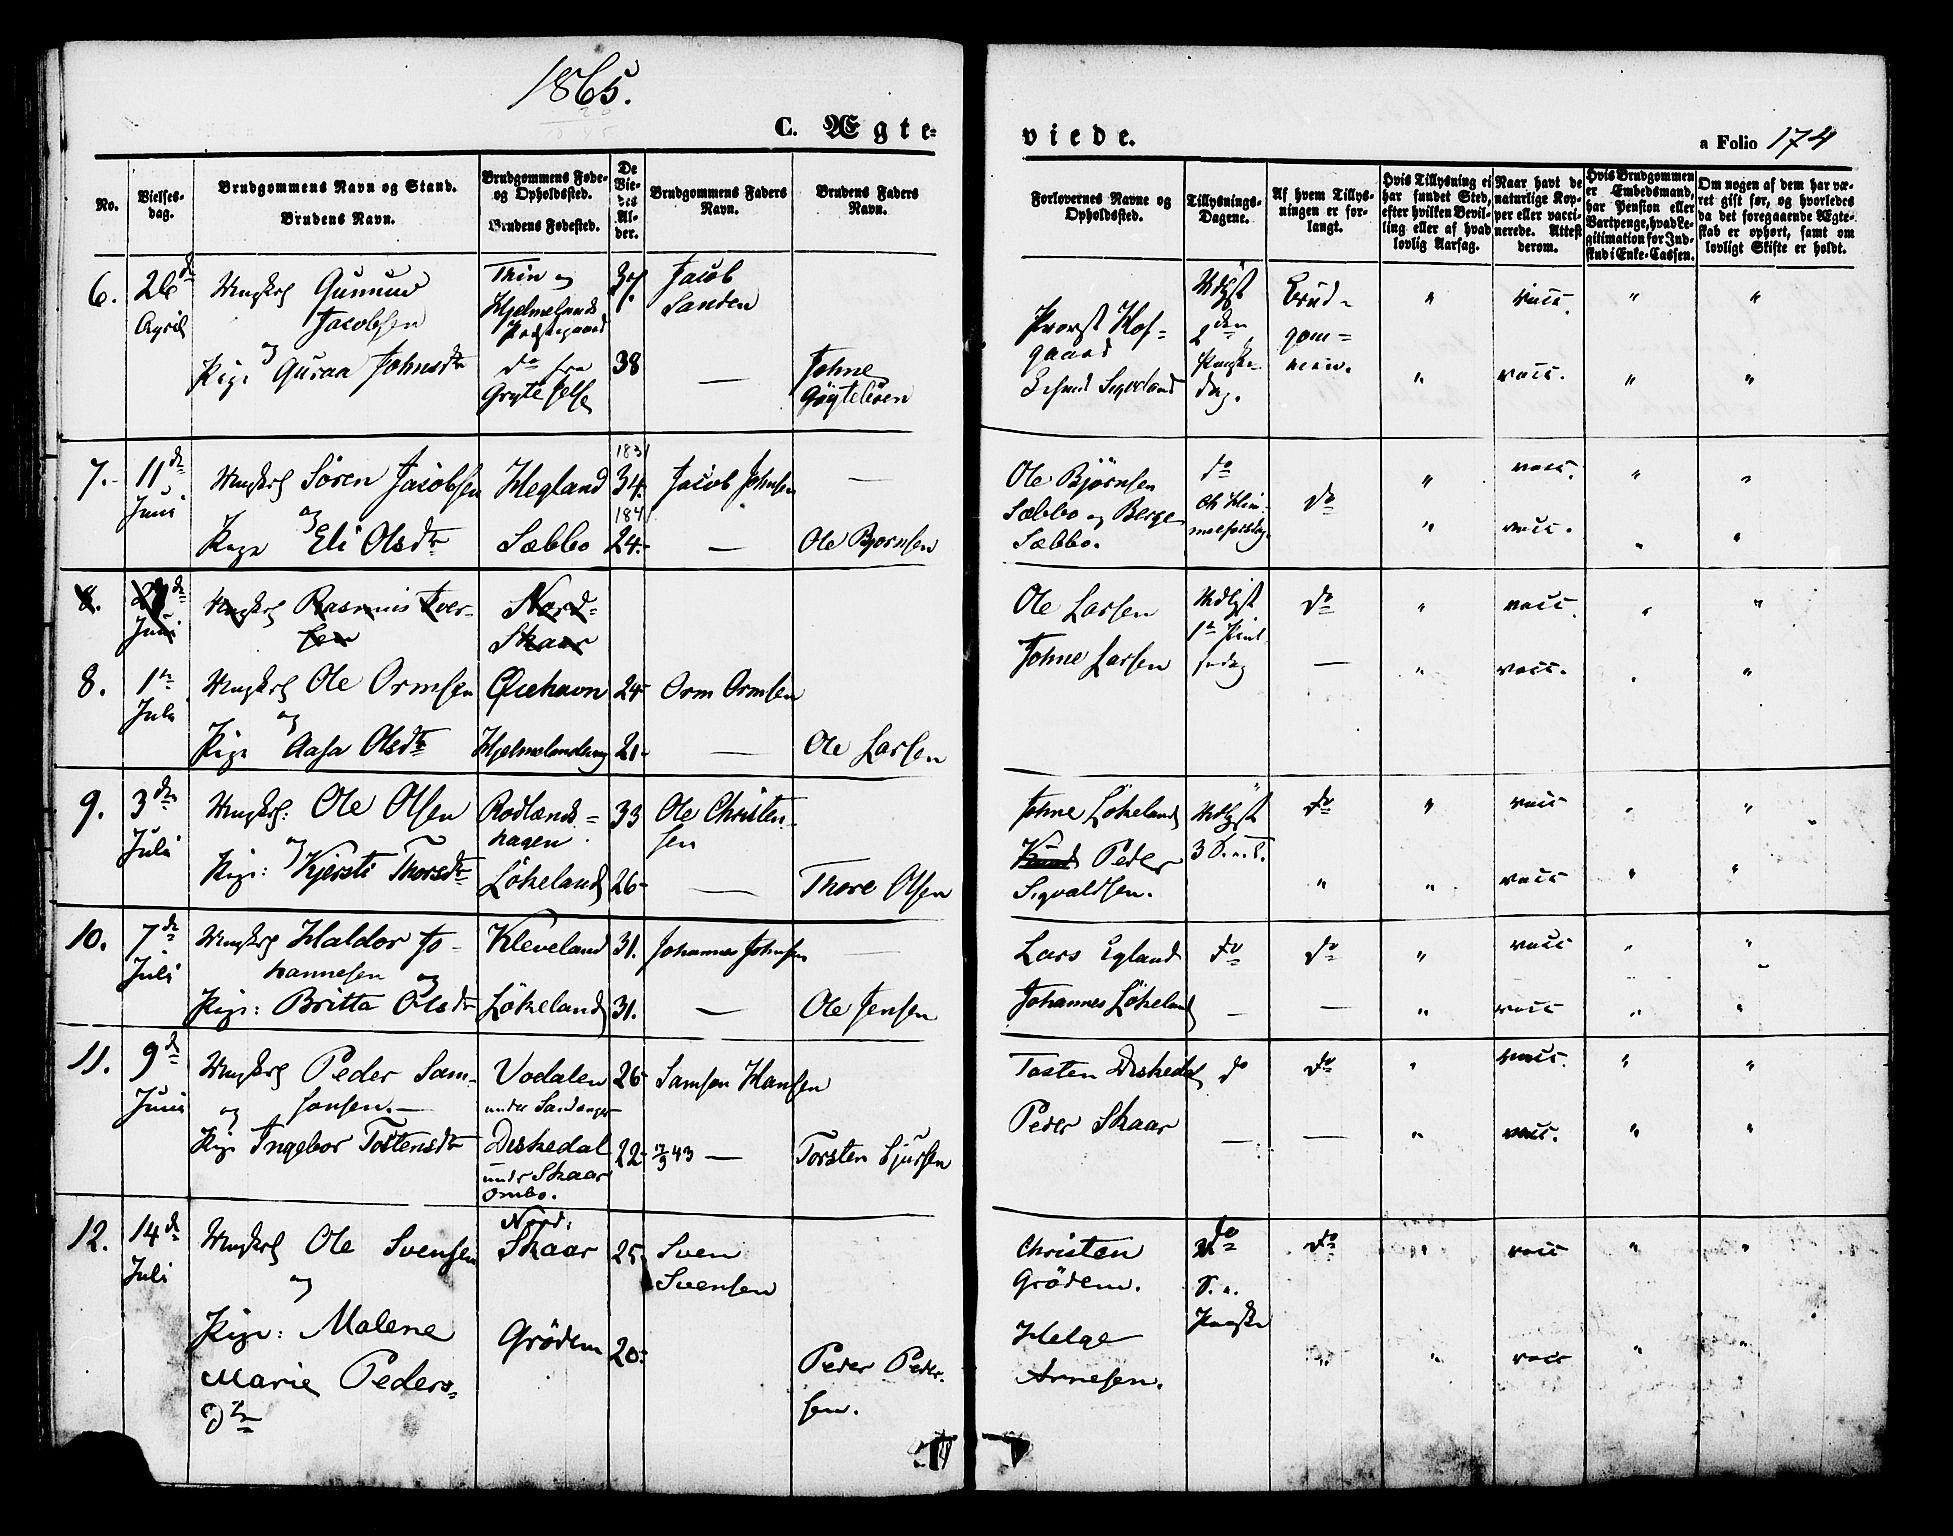 1865.
C. Ægte-
viede.
a Folio 174
No.
Vielses-
dag.
Brudgommens Navn og Stand.
Brudens Navn.
Brudgommens Føde-
og Opholdssted.
Brudens Fødested.
De
Vie-
des
Al-
der.
Brudgommens Faders
Navn.
Brudens Faders
Navn.
Forlovernes Navne og
Opholdssted.
Tillysnings-
Dagene.
Af hvem Tillys-
ningen er for-
langt.
Hvis Tillysning ei
har fundet Sted,
efter hvilken Bevil-
ling eller af hvad
lovlig Aarsag.
Naar havt de
naturlige Kop-
per eller vacci-
nerede. Attest
derom.
Hvis Brudgommen
er Embedsmand,
har Pension eller
Vartpenge, hvad Le-
gitimation for Ind-
skud i Enke-Cassen.
Om nogen af dem har væ-
ret gift før, og hvorledes
da det foregaaende Ægte-
skab er ophørt, samt om
lovligt Skifte er holdt.
6. 26de April
Ungkrl Gunnar
Jacobsen
og
Pige Guraa Johnsdtr
Hjelmelands
Præstegaard
do fra
Jelse
37.
38
Jacob
Sanden
—
Johne
Provst Hof-
gaard
Udlyst
2den
Paaske-
dag.
Brud-
gom-
men.
" vacc. " "
" vacc. " "
7. 11de Juni
Ungkrl Søren Jacobsen
og
Pige Eli Olsdtr
Hegland
Sæbbo
1831
34.
1841
24.
Jacob Johnsen —
— Ole Bjørnsen
Ole Bjørnsen
Sæbbo og Berge
Sæbbo.
do
Chr Him-
melfartsdag.
do
" vacc. " "
" vacc. " "
8. Juni
Ungkrl Rasmus Iver-
sen
Nord-
Skaar
8. 1ste Juli
Ungkrl Ole Ormsen
og
Pige Aasa Olsdtr
24
21
Orm Ormsen
— Ole Larsen
Ole Larsen
Johne Larsen
Udlyst
1ste Pint
sedag
do
—
" vacc. " "
" vacc. " "
9. 3die Juli
Ungkrl: Ole Olsen
og
Pige: Kjersti Thorsdtr
Rodlands-
hagen.
Løkeland
33
26
Ole Christen-
sen
— Thore Olsen
Johne Løkeland
Knud Peder
Sigvaldsen.
Udlyst
do
" vacc " "
" " vacc " "
10. 7de Juli
Ungkrl Haldor Jo-
hannesen
og
Pige: Britta Olsdtr
Kleveland
Løkeland
31.
31.
Johannes Johnsen —
— Ole Jensen
Lars Egland
Johannes Løkeland
do do " vacc " "
— — " vacc " "
11. 9de Juni
Ungkrl Peder Sam-
sonsen.—
og
Pige Ingebor Tostensdtr
Vodalen
under Sandanger
Diskedal
under Skaar
Ombo.
26
22
Samson Hansen
43 — Torsten Sjursen
Tosten Diskedal
Peder Skaar
do do " vacc. " "
— — " vacc. " "
12. 14de Juli
Ungkrl Ole Svensen
og
Pige: Malene
Marie Peders-
Dtr
Nord.
Skaar
Grødem
25
20
Sven
Svensen
Peder Peder-
sen.
Christen
Grødem.
Helge
Arnesen.
do
Paaske
do
" vacc " "
" " vacc " "